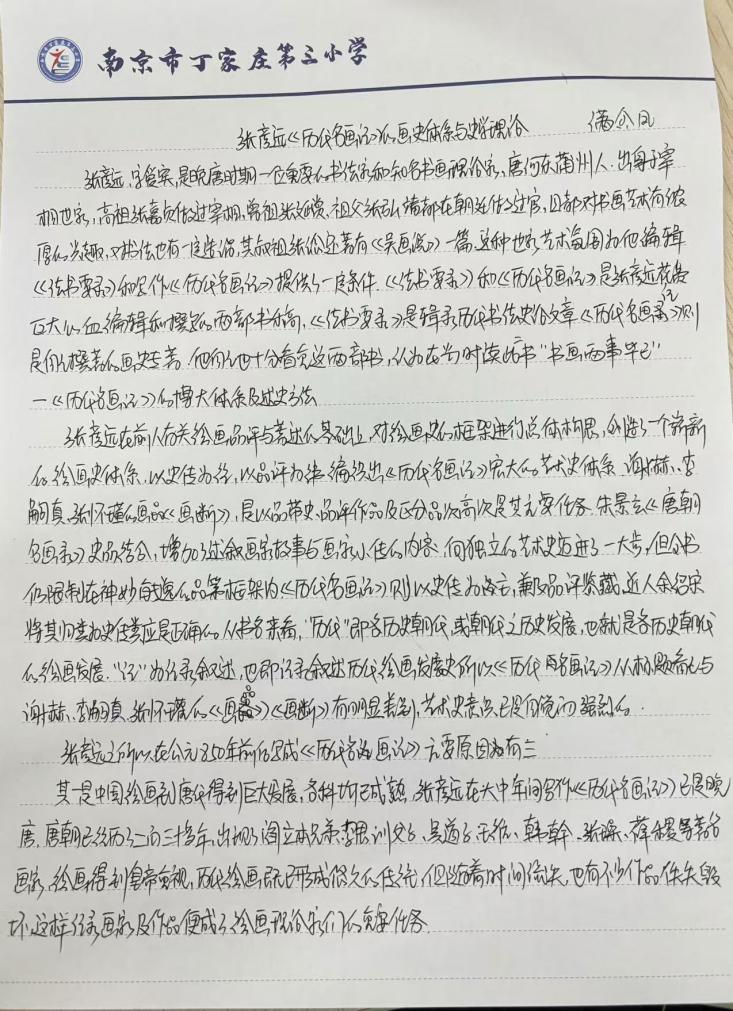 南京市丁家庄第三小学
张彦远《历代名画记》的画史体系与史学理论
张彦远,字爱宾,是晚唐时期一位重要的书法家和知名书画理论家,唐河东蒲州人.出身于宰
相世家,高祖张嘉贞做过宰相,曾祖张延赏,祖父张弘靖都在朝廷做过官,且都对书画艺术有浓
厚的兴趣,对书法也有一定造诣,其叔祖张谂还著有《吴画说》一篇,这种世家艺术氛围为他编辑
《法书要录》和写作《历代名画记》提供了一定条件.《法书要录》和《历代名画记》是张彦远花费
巨大心血编辑和撰写的两部书稿,《法书要录》是辑录历代书法史论文章《历代名画记》则
是他撰著的画史专著.他自己也十分看重这两部书,认为在当时读此书"书画两事毕矣"
一《历代名画记》的博大体系及述史方法
张彦远在前人有关绘画品评与著述的基础上,对绘画史的框架进行总体构思,创造了一个崭新
的绘画史体系,以史传为经,以品评为纬,编织出《历代名画记》宏大的艺术史体系.谢赫、李
嗣真、张怀瓘的画品《画断》,是以品带史,品评作品及区分品次高次是其主要任务.朱景玄《唐朝
名画录》史品结合,增加了述叙画家故事与画家小传的内容,向独立的艺术史迈进了一大步,但全书
仍限制在神妙能逸的品第框架内.《历代名画记》则以史传为主,兼及品评鉴藏,近人余绍宋
将其归类为史传类应是正确的.从书名来看,"历代"即各历史朝代,或朝代之历史发展,也就是各历史朝代
的绘画发展."记"为记录叙述,也即记录叙述历代绘画发展史所以《历代名画记》从标题看与
谢赫、李嗣真、张怀瓘的《画品》《画断》有明显差别,艺术史意识已是自觉而强烈的.
张彦远之所以在公元850年前后写成《历代名画记》主要原因为有三
其一是中国绘画到唐代得到巨大发展,各科均已成熟.张彦远在大中年间写作《历代名画记》已是晚
唐,唐朝已经历了二百三十多年,出现了阎立本兄弟、李思训父子、吴道子、王维、韩幹、张璪、薛稷等著名
画家,绘画得到皇帝重视,历代绘画既已形成悠久的传统,但随着时间流失,也有不少作品佚失毁
坏,这样记录画家及作品便成了绘画理论家们的重要任务.